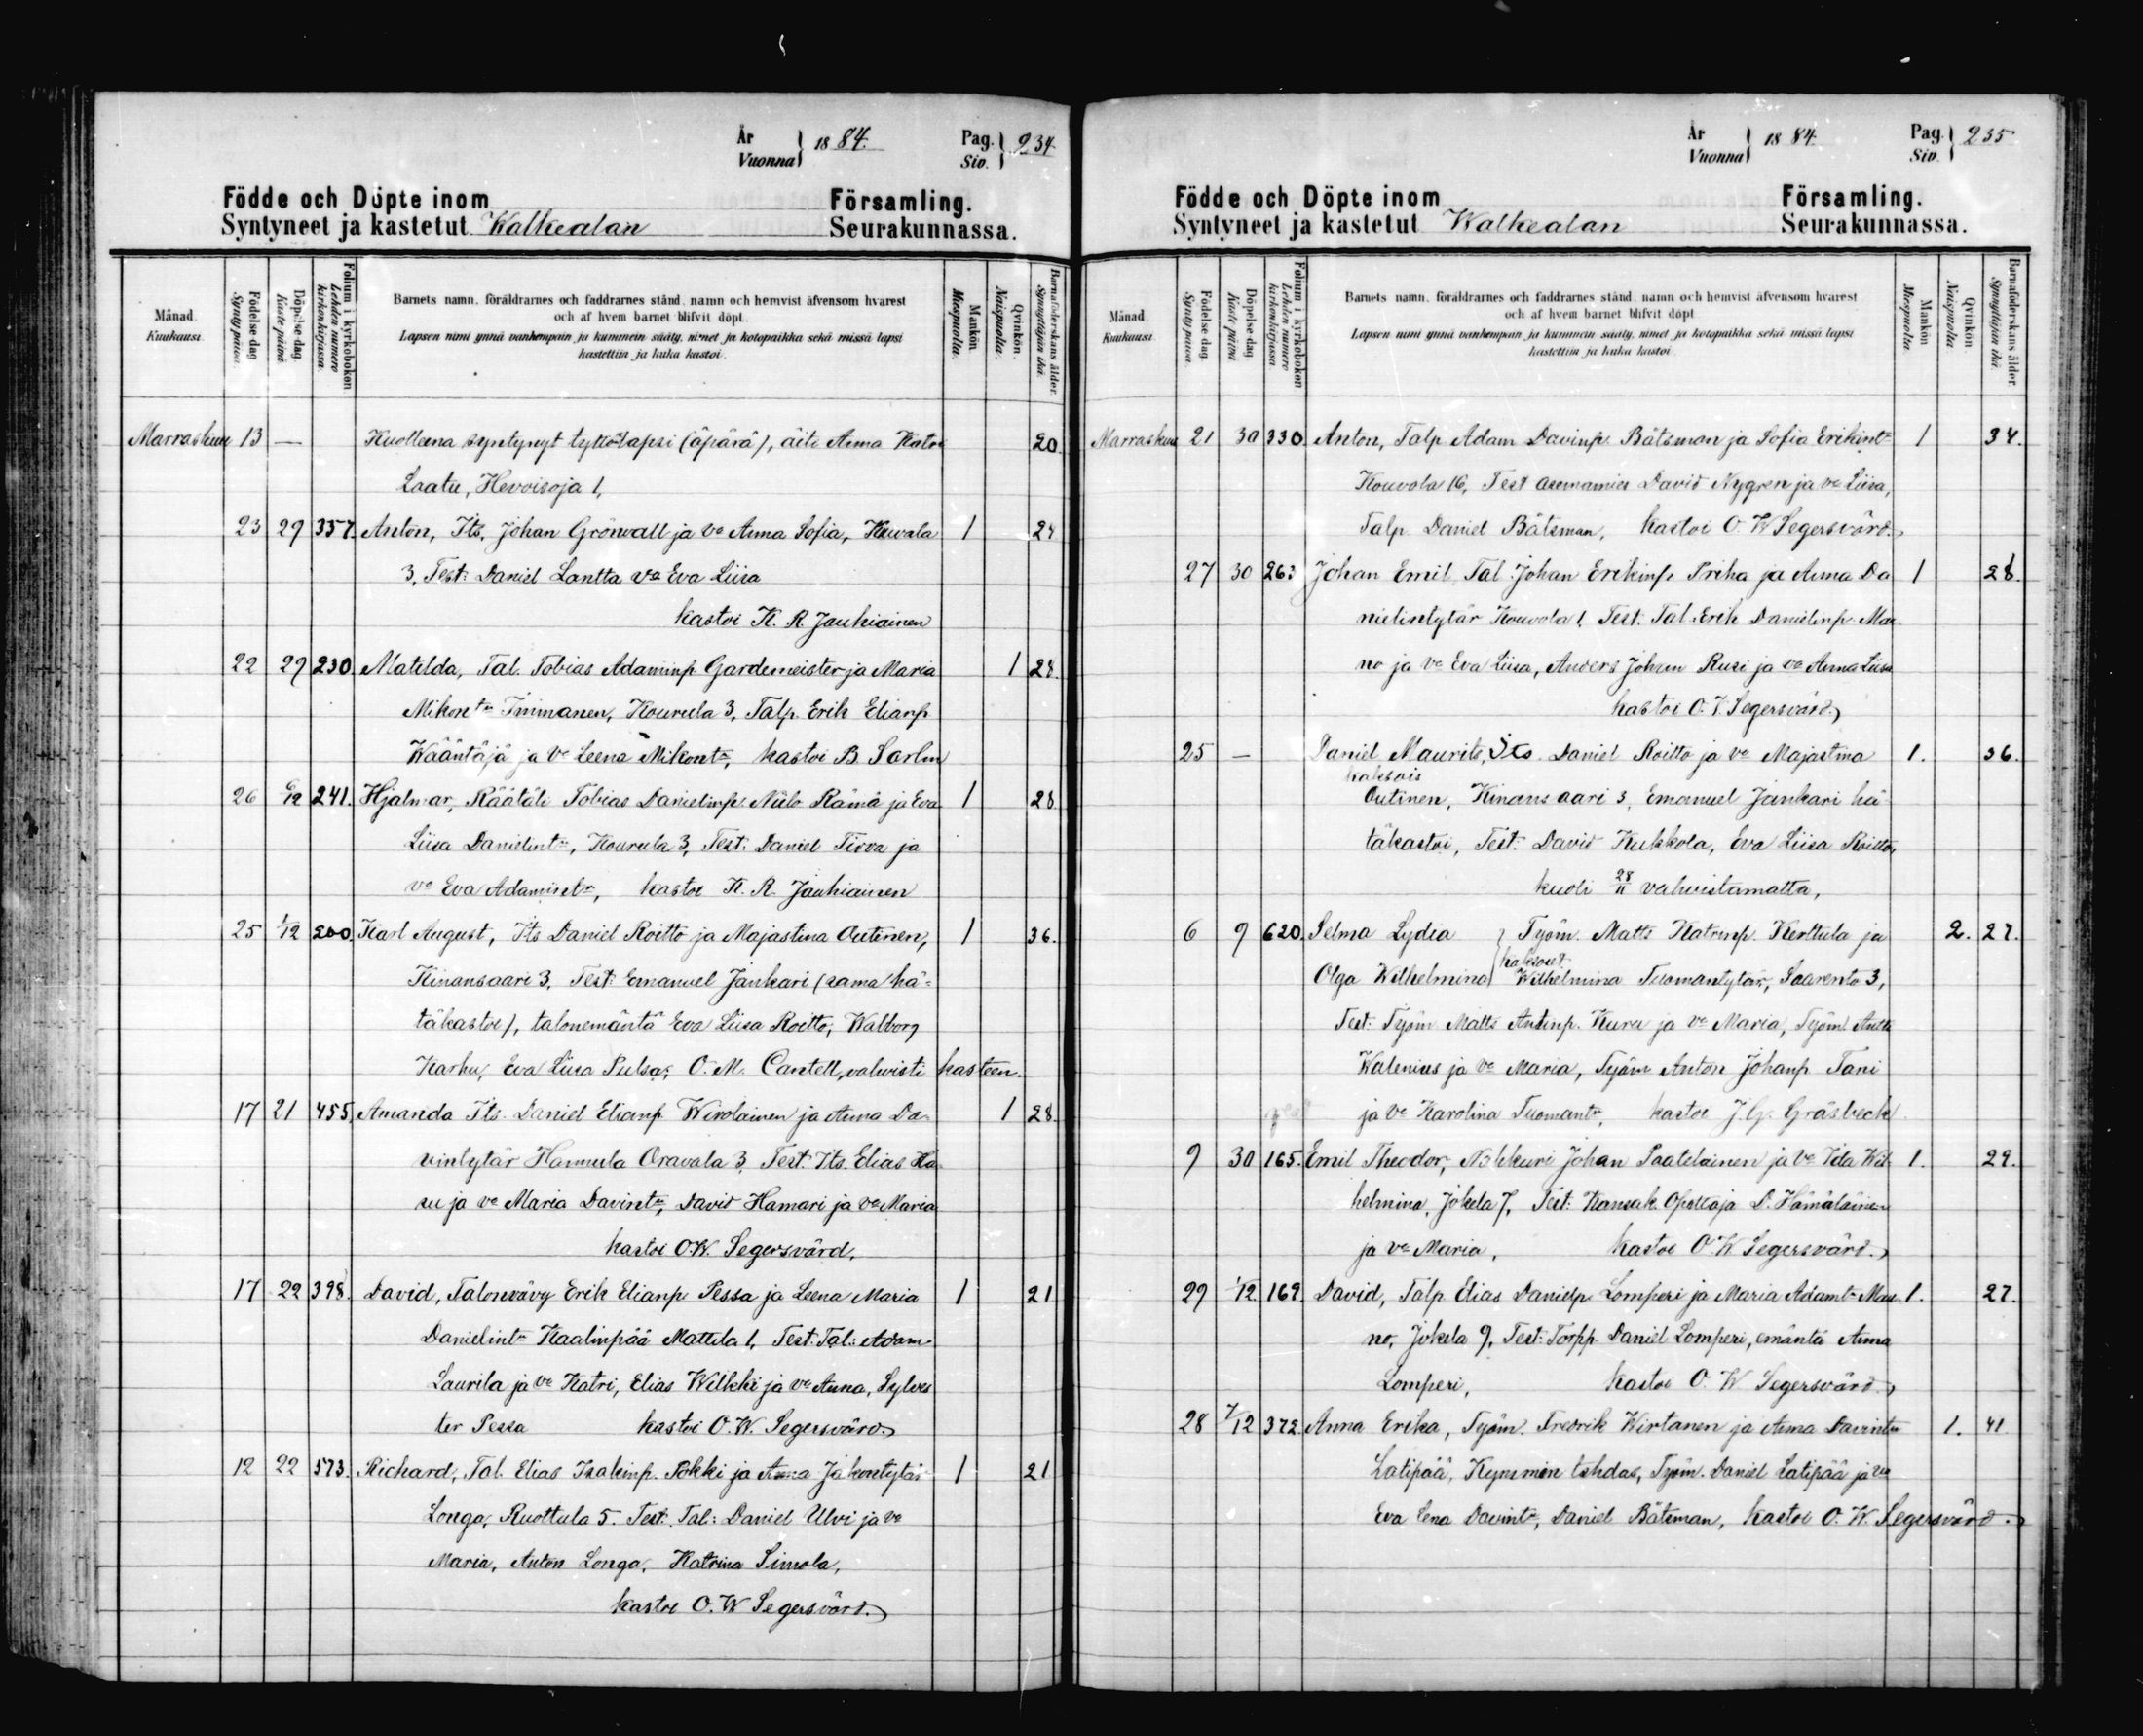 År
Vuonna } 1884. Pag. Siv. } 234
Födde och Döpte inom Församling.
Syntyneet ja kastetut Walkealan Seurakunnassa.
Månad. Kuukausi.
Födelse dag. Synty päivä.
Döpelse dag. Kaste päivä
Folium i kyrkobokon Lehden numero kirkonkirjassa.
Barnets namn, föräldrarnes och faddrarnes stånd, namn och hemvist äfvensom hvarest
och af hvem barnet blifvit döpt.
Lapsen nimi ynnä vanhempain ja kummein sääty, nimet ja kotopaikka sekä missä lapsi
kastettiin ja kuka kastoi.
Mankön Miespuolia.
Qvinkön. Naispuolia.
Barnaföderskans ålder. Synnyttäjän ikä.
Marraskuu 13 — Kuolleena syntynyt tyttölapsi (äpärä), äiti Anna Katri 20
Laatu, Hevoisoja 1,
23 29 357. Anton, Its. Johan Grönvall ja vo Anna Sofia, Kuvala 1 24
3, Test: Daniel Lantta vo Eva Liisa
kastoi K. R. Jauhiainen
22 29 230 Matilda, Tal. Tobias Adaminp. Gardemeister ja Maria 1 28.
Mikontr Immanen, Kourula 3, Talp. Erik Elianp
Wääntäjä ja vo Leena Mikontr, kastoi B. Sarlin
26 6/12 241. Hjalmar, Räätäli Tobias Danielinp. Niilo Rämä ja Eva 1 28
Liisa Danielintr, Kourula 3, Test: Daniel Tiova ja
vo Eva Adamintr, kastoi K. R. Jauhiainen
25 1/12 200 Karl August, Its Daniel Roitto ja Majastina Outinen, 1 36.
Kinansaari 3. Test: Emanuel Jankari (sama hä=
täkastoi), talonemäntä Eva Liisa Roitto, Walborg
Karhu, Eva Liisa Pulsa; O. M. Cantell, vahvisti kasteen.
17 21 455, Amanda Its. Daniel Elianp Wirolainen ja Anna Da- 1 28.
vintytär Hannula Oravala 3, Test: Its. Elias Ha
su ja vo Maria Davintr, David Hamari ja vo Maria
kastoi O.W. Segersvärd.
17 22 398. David, Talonvävy Erik Elianp Pessa ja Leena Maria 1 21
Danielintr Kaalinpää Mattila 1, Test: Tal: Adam
Laurila ja vo Katri, Elias Wilkki ja vo Anna, Sylves
ter Pessa kastoi O. W. Segersvärd
12 22 573. Richard, Tal. Elias Isakinp. Pokki ja Anna Jakontytär 1 21
Longa, Ruottula 5. Test: Tal: Daniel Ulvi ja vo
Maria, Anton Longa, Katrina Simola,
kastoi O. W Segersvärd.
År
Vuonna } 1884. Pag. Siv. } 235
Födde och Döpte inom Församling.
Syntyneet ja kastetut Walkealan Seurakunnassa.
Månad Kuukausi.
Födelse dag. Synty päivä.
Döpelse dag. Kaste päivä
Folium i kyrkobokon Lehden numero kirkonkirjassa
Barnets namn, föräldrarnes och faddrarnes stånd, namn och hemvist äfvensom hvarest
och af hvem barnet blifvit döpt
Lapsen nimi ynnä vanhempain ja kummein sääty, nimet ja kotopaikka sekä missä lapsi
kastettiin ja kuka kastoi.
Mankön Miespuolia
Qvinkön Naispuolia
Barnaföderskans ålder. Synnyttäjän ikä.
Marraskuu 21 30 330. Anton, Talp Adam Davinp. Båtsman ja Sofia Erikintr 1 34.
Kouvola 16, Test asemamies David Nygren ja vo Liisa,
Talp. Daniel Båtsman, kastoi O. W Segersvärd.
27 30 263 Johan Emil, Tal. Johan Erikinp. Priha ja Anna Da 1 28.
nielintytär Kouvola 1, Test. Tal. Erik Danielinp. Mau
no ja vo Eva Liisa, Anders Johan Rusi ja vo Anna Liisa
kastoi O. V. Segersvärd.
25 — Daniel Maurits, Its. Daniel Roitto ja vo Majastina 1. 36.
kaksois
Outinen, Kinansaari 3, Emanuel Jankari hä
täkastoi, Test: David Kukkola, Eva Liisa Roitto,
kuoli 28/11 vahvistamatta,
6 9 620. Selma Lydia } Työm. Matts Katrinp. Kerttula ja 2. 27.
kaksoset
Olga Wilhelmina } Wilhelmina Tuomantytär, Saarento 3,
Test: Työm. Matts Antinp. Kuru ja vo Maria, Työm Antti
Walenius ja vo Maria, Työm Anton Johanp. Tani
ja vo Karolina Tuomantr, kastoi J. G. Gräsbeck
9 30 165. Emil Theodor, Nahkuri Johan Paatelainen ja vo Ida Wil 1. 29.
helmina, Jokela 7, Test: Kansak. Opettaja D. Hämäläinen
ja vo Maria, kastoi O. W. Segersvärd.
29 1/12. 169. David, Talp. Elias Danielp. Lomperi ja Maria Adamtr Mau 1. 27.
no, Jokela 9, Test: Torpp. Daniel Lomperi, emäntä Anna
Lomperi, kastoi O. W Segersvärd.
28 7/12 372. Anna Erika, Työm. Fredrik Wirtanen ja Anna Davintr 1. 41
Latipää, Kymmin tehdas, Työm. Daniel Latipää ja vo
Eva Lena Davintr, Daniel Båtsman, kastoi O. W. Segersvärd.